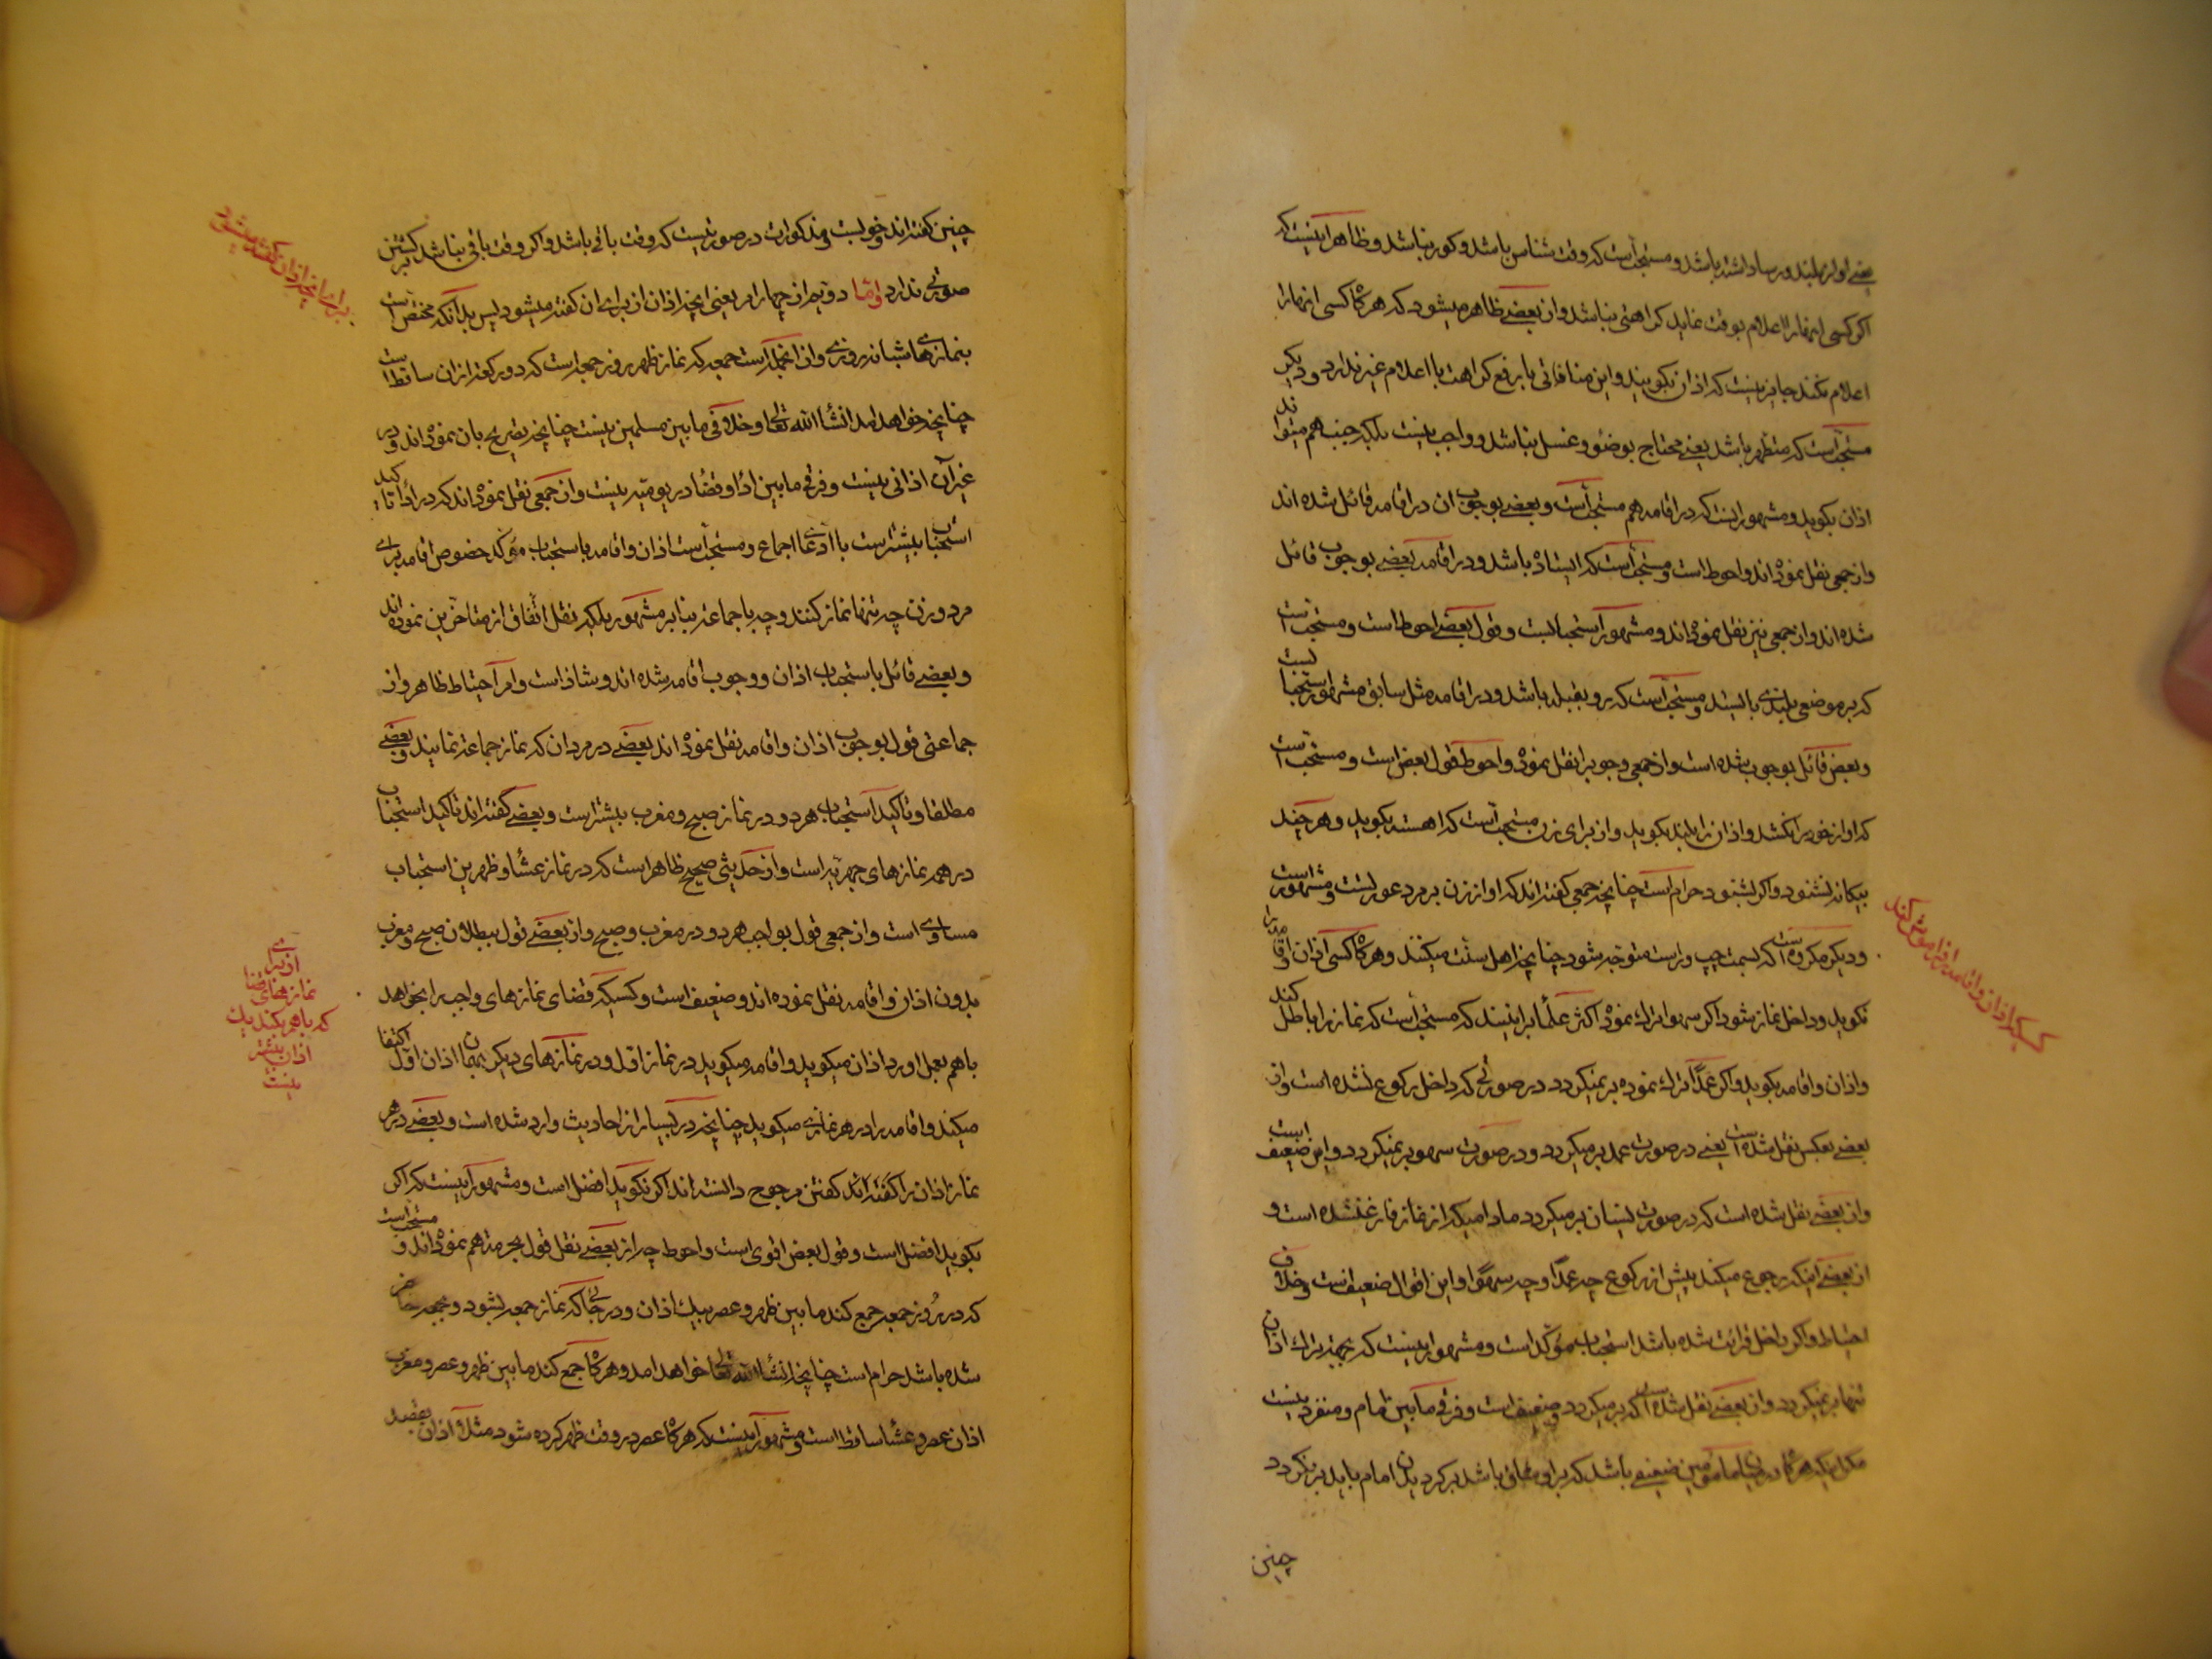 یعنی اواز بلند و رسا داشته باشد و مستحبست که وقت شناس باشد و کور نباشد و ظاهر اینست که
اکر کسی اورا اعلام بوقت نماید کراهتی نباشد و از بعضی ظاهر میشود که هرکاه کسی انها را
اعلام نکند جایز نیست که اذان بکویند و این منافاتی با رفع کراهت با اعلام غیر ندارد و دیکر
مستحبست که متطهر باشد یعنی محتاج بوضو و غسل نباشد و واجب نیست بلکه جنب هم میتواند
اذان بکوید و مشهور اینست که در اقامه هم مستحبست و بعضی بوجوب ان در اقامه قائل شده اند
و از جمعی نقل نموده اند و احوط است و مستحبست که ایستاده باشد و در اقامه بعضی بوجوب قائل
شده اند و از جمعی نیز نقل نموده اند و مشهور استحبابست و قول بعضی احوط است و مستحب است
که بر موضعی بلندی بایستد و مستحبست که رو بقبله باشد و در اقامه مثل سابق مشهور استحبابست
و بعض قائل بوجوب شده است و از جمعی وجوب را نقل نموده و احوط قول بعض است و مستحب است
که اواز خود را نکشد و اذان را بلند بکوید و از برای زن مستحبست که اهسته بکوید و هر چند
بیکانه نشنود و اکر بشنود حرام است چنانچه جمعی کفته اند که اواز زن بر مرد عورتست و مشهور است
و دیکر مکروه است که بسمت چپ و راست متوجه شود چنانچه اهل سنت میکنند و هرکاه کسی اذان و اقامه را
نکوید و داخل نماز شود اکر سهوا ترک نموده اکثر علما برانند که مستحبست که نماز را باطل کند
و اذان و اقامه بکوید و اکر عمدا ترک نموده بر نمیکردد در صورتی که داخل رکوع نشده است و از
بعضی بعکس نقل شده است یعنی در صورت عمد بر میکردد و در صورت سهو بر نمیکردد و این ضعیف است
و از بعضی نقل شده است که در صورت نسیان بر میکردد مادامیکه از نماز فارغ نشده است و
از بعضی اینکه رجوع میکند پیش از رکوع چه عمدا و چه سهوا و این اقوال ضعیف است و خلاف
احتیاط و اکر داخل قرائت شده باشد استحباب مؤکد است و مشهور اینست که بجهة ترک اذان
تنها بر نمیکردد و از بعضی نقل شده است که بر میکردد و ضعیف است و فرقی مابین امام و منفرد نیست
مکر اینکه هرکاه در میان مأمومین ضعیفی باشد که بر او شاق باشد بر کردیدن امام باید بر نکردد
چنین
کسیکه اذان و اقامه را فراموش کند
چنین کفته اند و خوبست و مذکورات در صورتیست که وقت باقی باشد و اکر وقت باقی نباشد برکشتن
صورتی ندارد و اما دویم از چهار امر یعنی انچه اذان از برای ان کفته میشود پس بدانکه مختص است
بنمازهای شبانه روزی و از انجمله است جمعه که نماز ظهر روز جمعه است که دو رکعت از ان ساقط است
چنانچه خواهد امد انشاالله تعالی و خلافی مابین مسلمین نیست چنانچه تصریح بان نموده اند و در
غیر آن اذانی نیست و فرقی مابین ادا و قضا در یومیه نیست و از جمعی نقل نموده اند که در ادا تاکید
استحباب بیشتر است با ادعا اجماع و مستحبست اذان و اقامه باستحباب مؤکد خصوص اقامه برای
مرد و زن چه تنها نماز کنند و چه با جماعة بنابر مشهور بلکه نقل اتفاق از متاخرین نموده اند
و بعضی قائل باستحباب اذان و وجوب اقامه شده اند و شاذ است و امر احتیاط ظاهر و از
جماعتی قول بوجوب اذان و اقامه نقل نموده اند بعضی در مردان که نماز جماعة نمایند و بعضی
مطلقا و تاکید استحباب هر دو در نماز صبح و مغرب بیشتر است و بعضی کفته اند تاکید استحباب
در همه نمازهای جهریه است و از حدیثی صحیح ظاهر است که در نماز عشا و ظهرین استحباب
مساوی است و از جمعی قول بواجب هر دو در مغرب و صبح و از بعضی قول ببطلان صبح و مغرب
بدون اذان و اقامه نقل نموده اند و ضعیف است و کسیکه قضای نمازهای واجب را بخواهد
باهم بعمل اورد اذان میکوید و اقامه میکوید در نماز اول و در نمازهای دیکر بهمان اذان اول اکتفا
میکند و اقامه را در هر نمازی میکوید چنانچه در بسیار از احادیث وارد شده است و بعضی در هر
نماز اذان را کفته اند کفتن مرجوح دانسته اند اکر نکوید افضل است و مشهور اینست که اکر
بکوید افضل است و قول بعض اقوی است و احوط چه از بعضی نقل قول بحرمت هم نموده اند و مستحب است
که در روز جمعه جمع کند مابین ظهر و عصر بیک اذان و در جائی که نماز جمعه بشود و بجمعه حاضر
شده باشد حرام است چنانچه انشاالله تعالی خواهد امد و هرکاه جمع کند مابین ظهر و عصر و مغرب
اذان عصر و عشا ساقط است و مشهور اینست که هرکاه عصر در وقت ظهر کرده شود مثلا اذان بقصد
برای انچه اذان کفته میشود
از برای
نمازهای قضا
که باهم بکند یک
اذان بیشتر
نیست